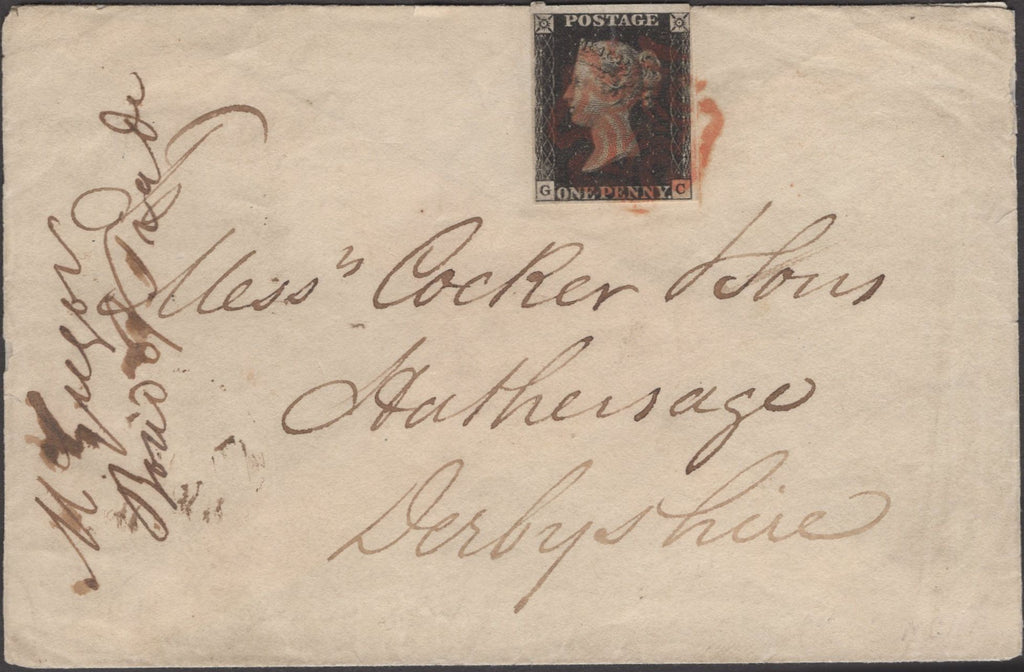 POSTAGE
G ONE PENNY. C
Mess.rs Cocker & Sons
Hathersage
Derbyshire
McGregor
Board of Trade